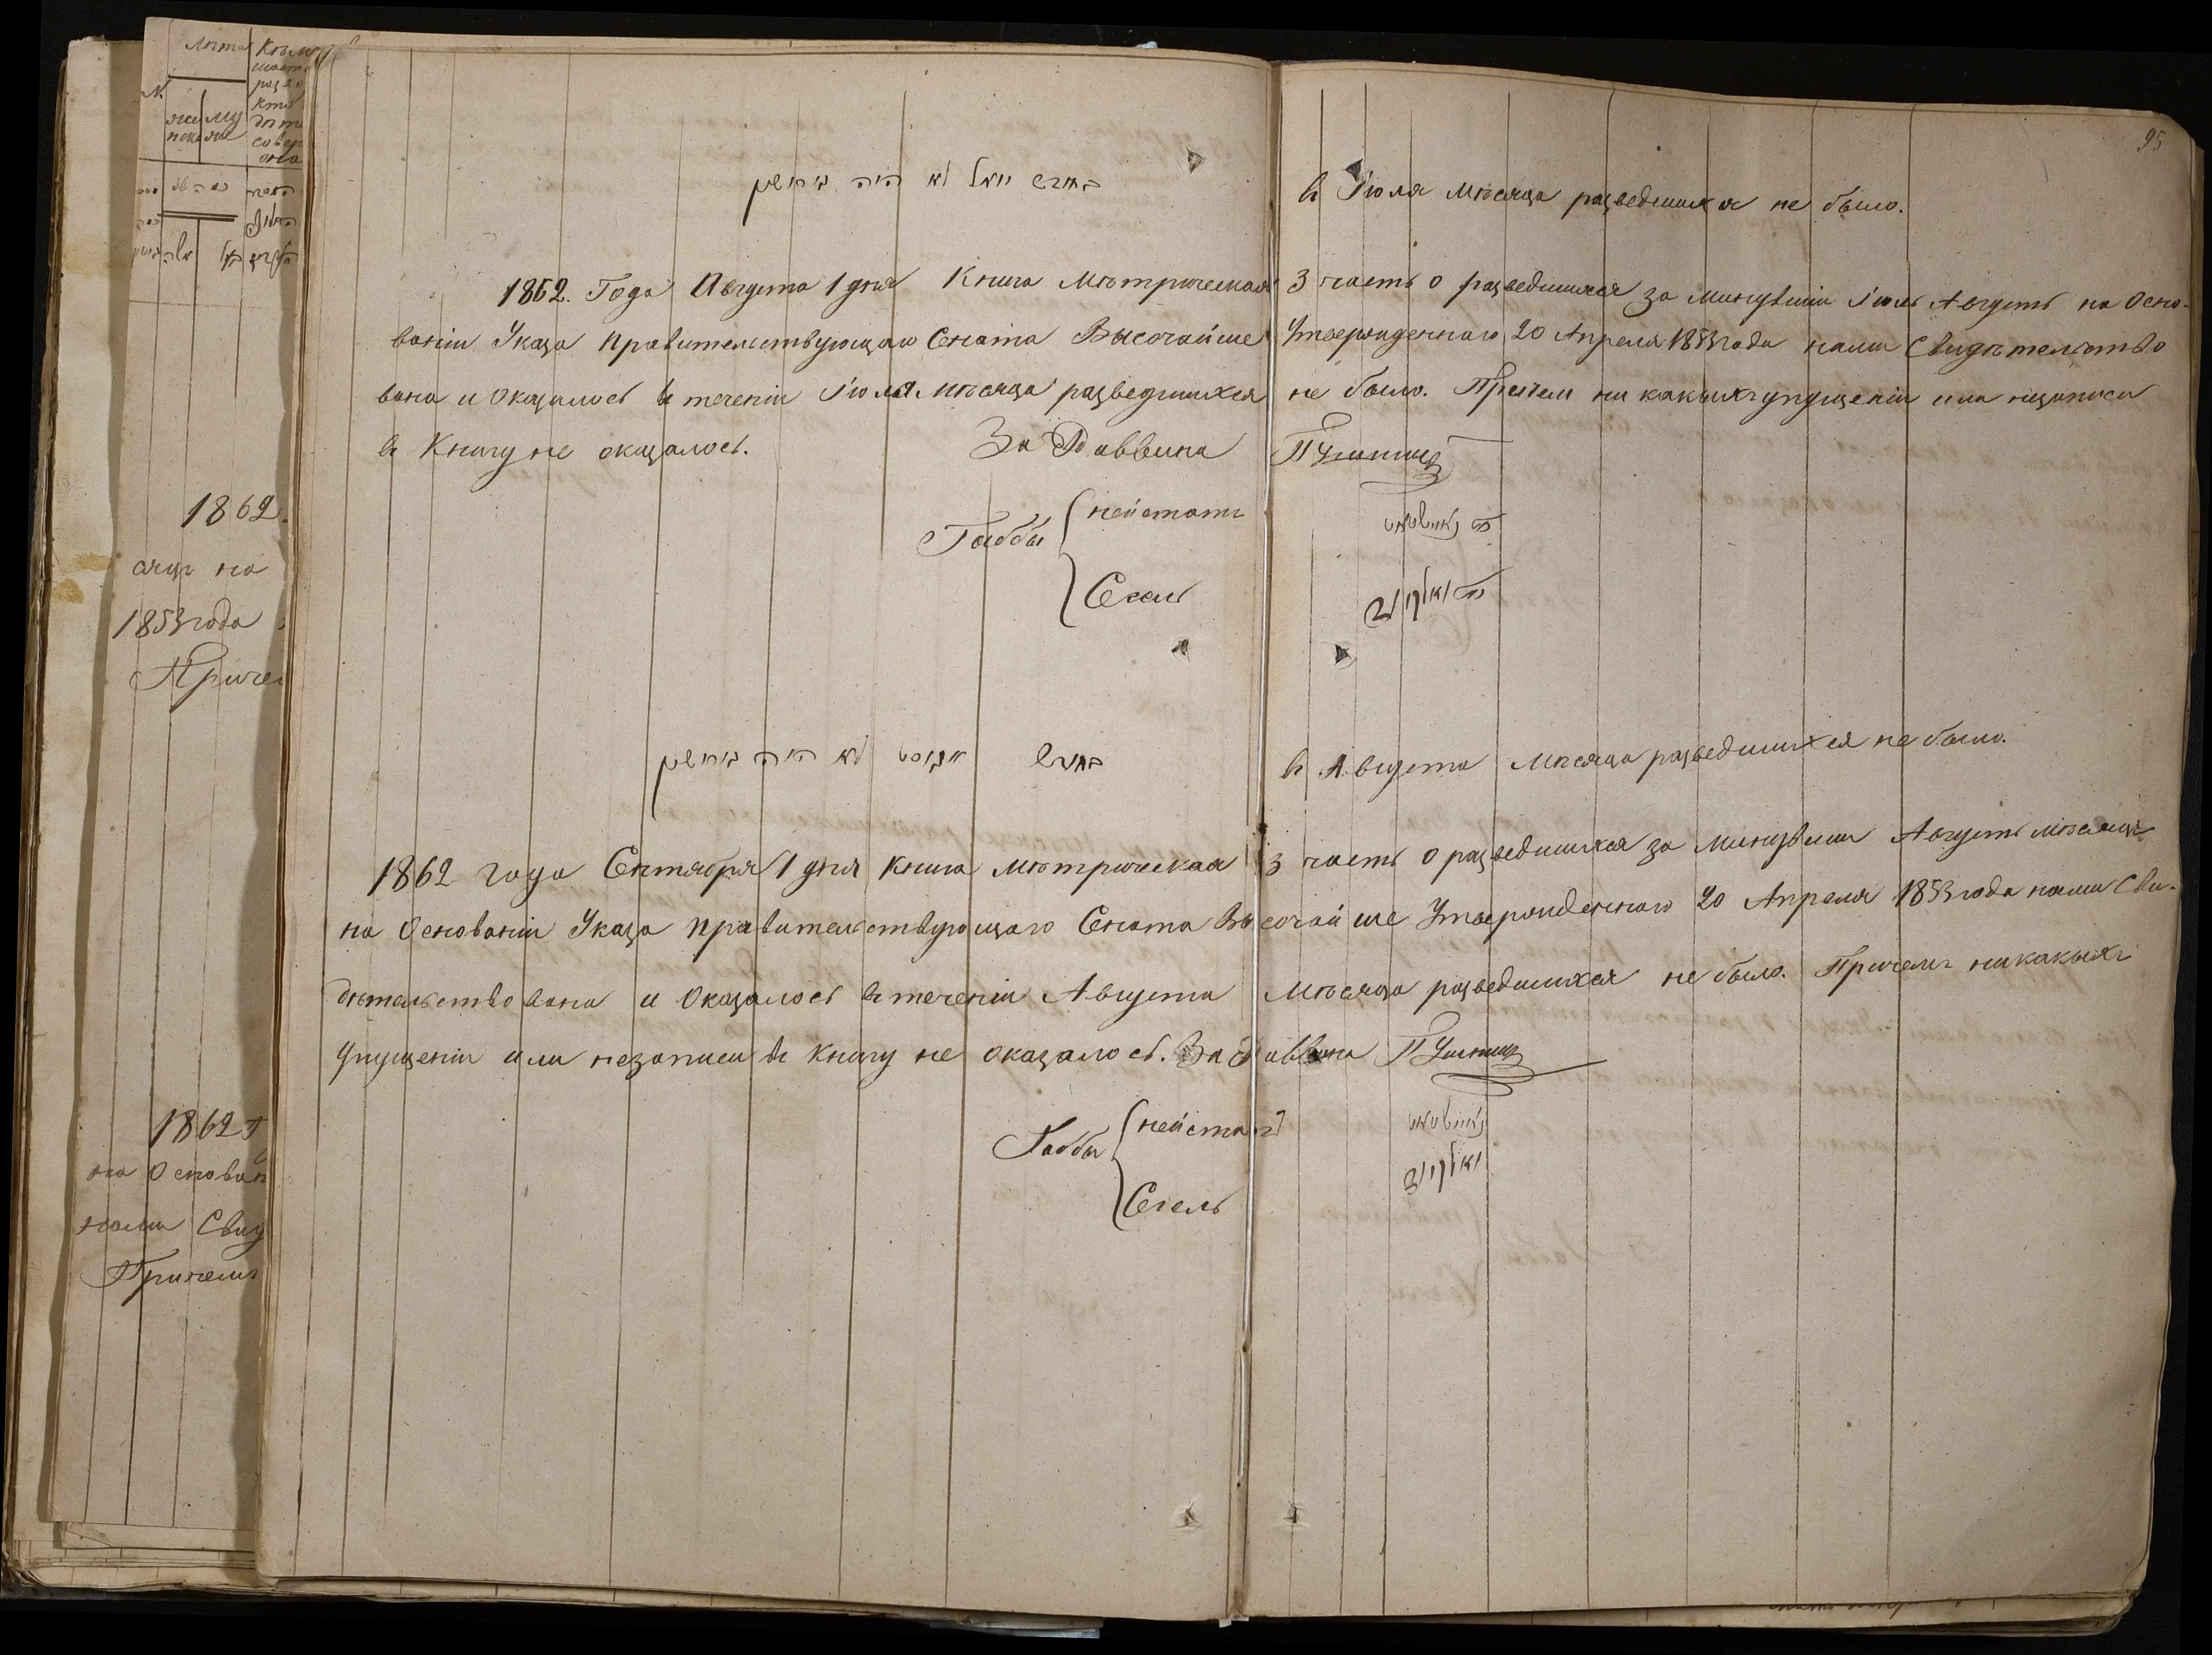 95
בחודש יואל לא היה גירושין
въ Іюля Мѣсяца разведшихся не было.
1862. Года Августа 1 дня Книга Метрическая 3 часть о разведшихся за минувшій Іюль Августъ на Осно-
ваніи Указа Правительствующаго Сената Высочайше Утвержденнаго 20 Апреля 1853 года нами Свидѣтельство
вана и Оказалось въ теченіи Іюля Мѣсяца разведшихся не было. Пречем ни какихъ упущеніи или незаписи
въ Книгу не оказалось. За Раввина
Габбы
Нейстатъ
Сегель
בחודש אגוסט לא היה גירושין
въ Августа Мѣсяца разведшихся не было.
1862 года Сентября 1 дня Книга Метрическая 3 часть о разведшихся за минувший Августъ мѣсяцъ
на Основаніи Указа Правительствующаго Сената Высочайше Утвержденнаго 20 Апреля 1853 года нами Сви-
дѣтельствована и Оказалось въ теченіи Августа Мѣсяца разведшихся не было. Причемъ никакихъ
упущеніи или незаписи въ книгу не оказалось. За Раввина
Габбы
Нейстатъ
Сегель
1862.
на
1853 года
Причем
1862 г
на Основан
нами Свид
Причемъ